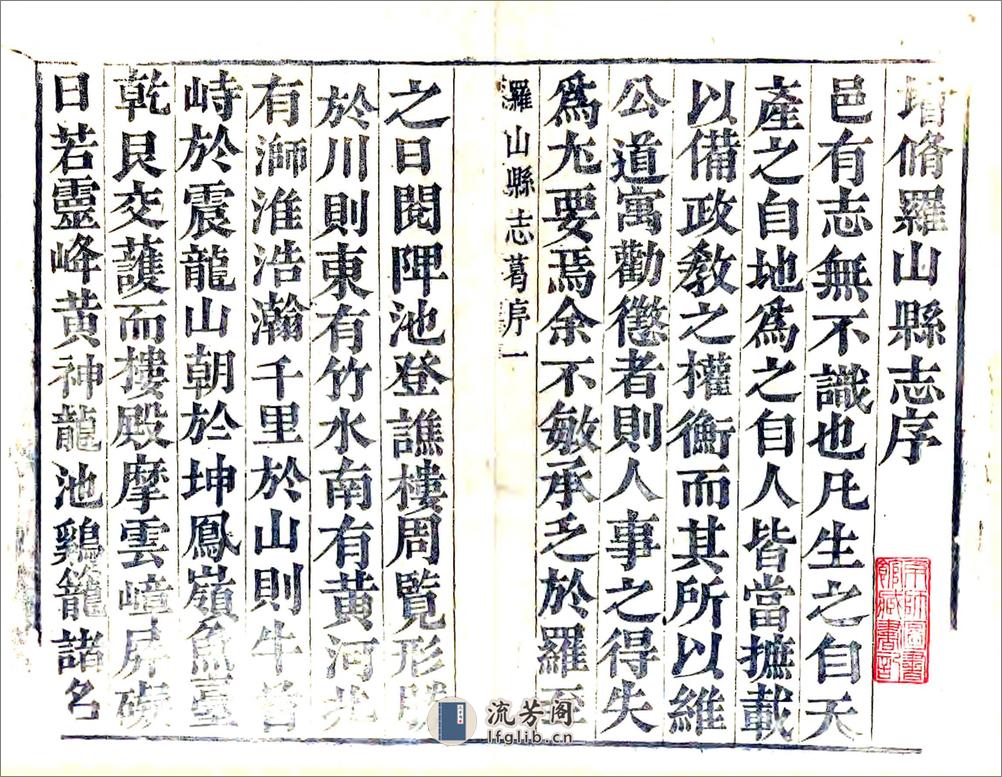 增脩羅山縣志序
邑有志無不識也凡生之自天
產之自地爲之自人皆當摭載
以備政教之權衡而其所以維
公道寓勸懲者則人事之得失
爲尤要焉余不敏承乏於羅至
羅山縣志葛序一
之日閱陴池登譙樓周覽形勝
於川則東有竹水南有黄河北
有溮淮浩瀚千里於山則牛首
峙於震龍山朝於坤鳳嶺魚臺
乾艮交護而樓殿摩雲嶂房礙
日若靈峰黄神龍池鷄籠諸名
流芳阁
lfglib.cn